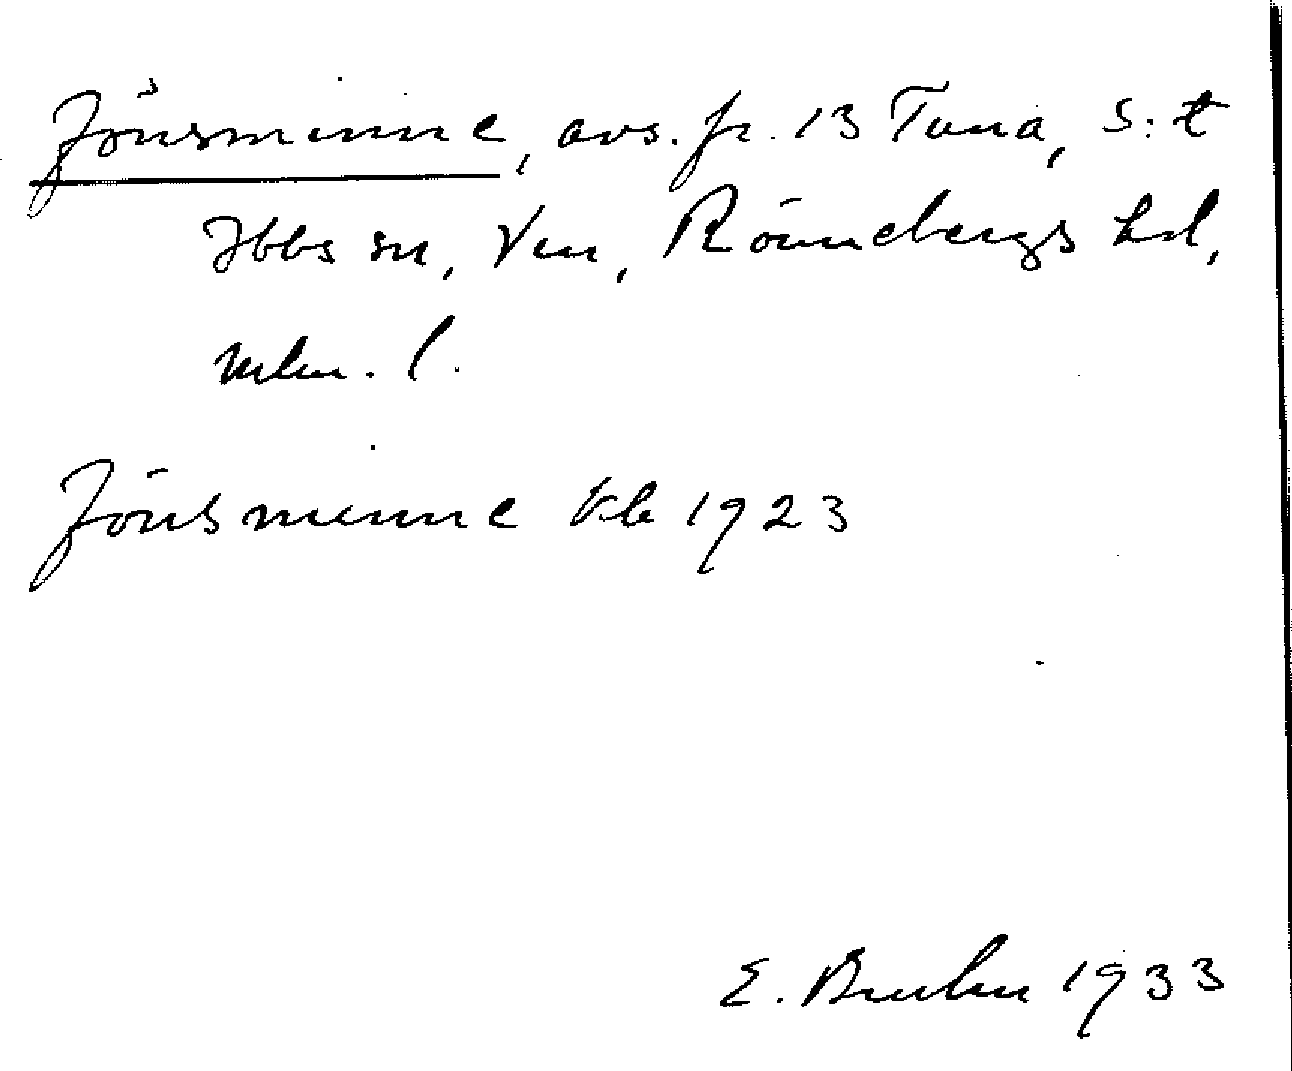 Jönsminne, avs. fr. 13 Tuna, S:t
Ibbs sn, Ven, Rönnebergs hd,
Mlm. l.
Jönsminne Kb 1923
E. Bruhn 1933